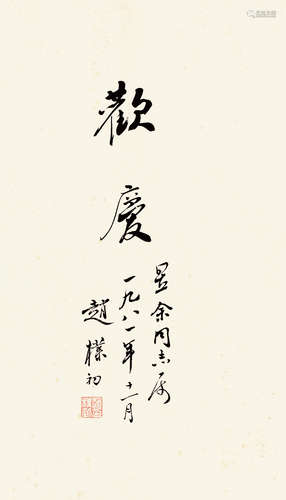 歡
慶
昱余同志属
一九八一年十一月
趙樸初